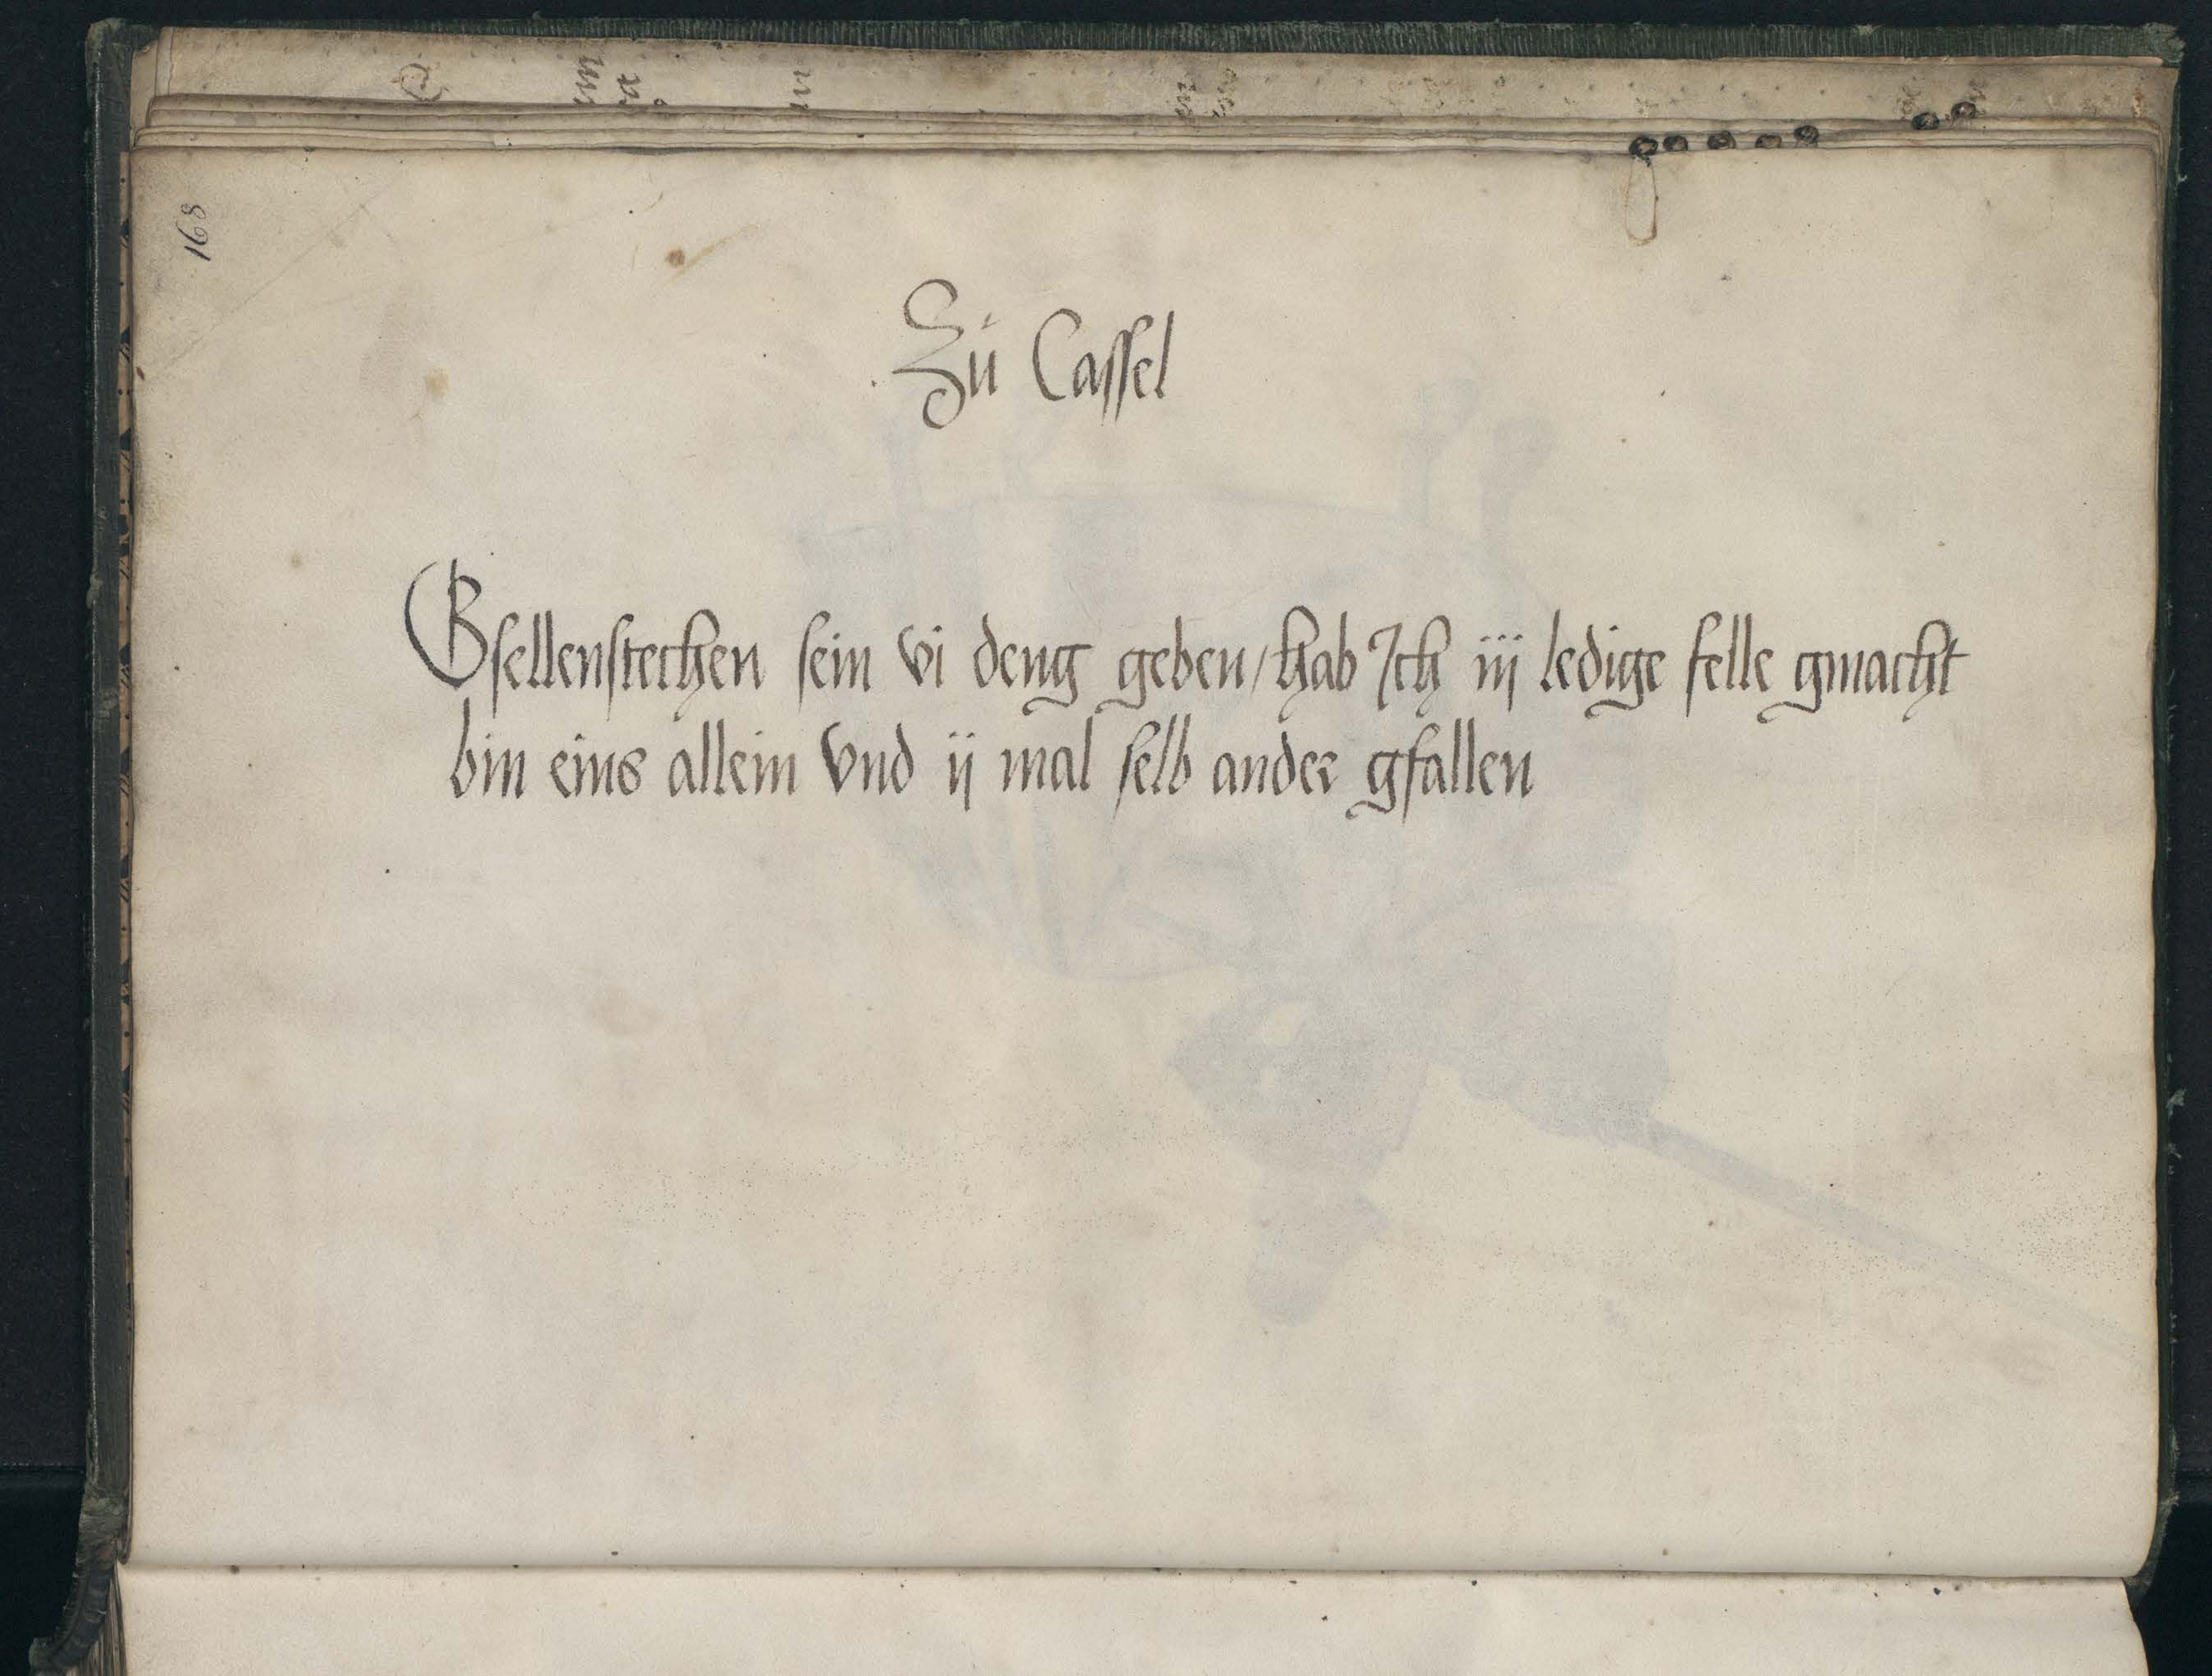 168
Zů Cassel
Gsellenstechen sein vi deng geben / hab Ich iij ledige felle gmacht
bin eins allein vnd ij mal selb ander gfallen